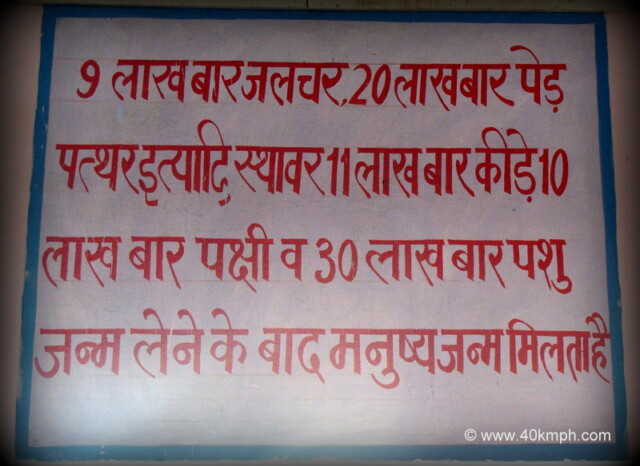 9 लाख बार जलचर, 20 लाख बार पेड़
पत्थर इत्यादि स्थावर 11 लाख बार कीड़े 10
लाख बार पक्षी व 30 लाख बार पशु
जन्म लेने के बाद मनुष्य जन्म मिलता है
© www.40kmph.com